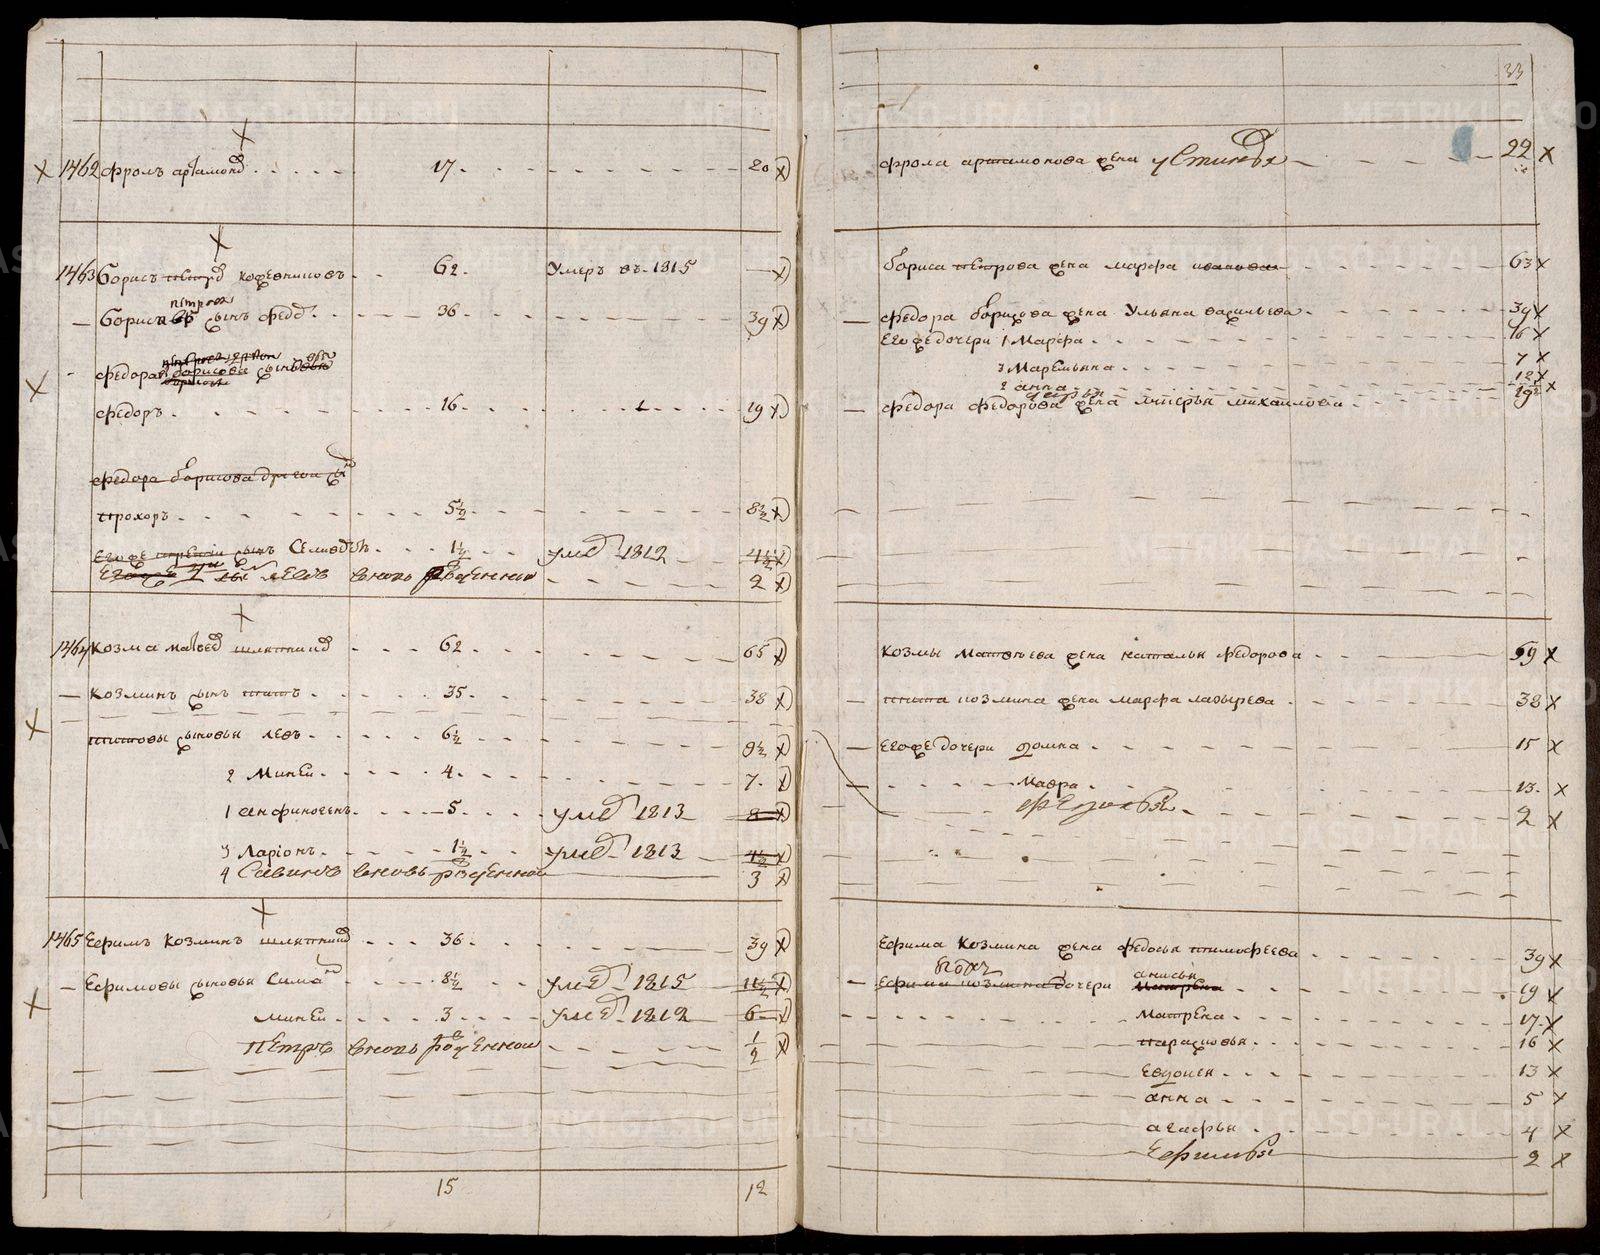 33
1462 фролъ артамонов 17 20
1463 борисъ петров кожевниковъ 62 Умеръ въ 1815
петров
бориса сынъ федор 36 39
федора борисова сынъ
федоръ 16 19
федора борисова другой сын
прохоръ 5½ 8½
Егоже третiй сынъ Селивѣрстъ 1½ умер 1812 4½
Егоже вновь рожденной 2
1464 козма матвеев шляпников 62 65
козминъ сынъ титъ 35 38
титовы сыновья левъ 6½ 9½
2 Миней 4 7
1 анфиногенъ 5 умер 1813 8
3 Ларiонъ 1½ умер 1813 4½
4 Савинъ вновь рожденной 3
1465 Ефимъ козминъ шляпников 36 39
Ефимовы сыновья Сима 8½ умер 1815 11½
миней 3 умер 1812 6
Петръ вновь рожденной ½
15 12
фрола артамонова жена устинья 22
бориса петрова жена марфа иванова 63
федора борисова жена Ульяна васильева 39
Егоже дочери 1 Марфа 16
3 Маремьяна 7
2 анна 12
дарья
федора федорова жена лукерья михайлова 19
козмы Матвѣева жена наталья федорова 59
тита козмина жена марфа лазырева 38
Егоже дочери домна 15
Мавра 13
2
Ефима козмина жена федосья тимофеева 39
Ефима козмина дочери анисья 19
Матрена
Матрена 17
парасковья 16
Евдокея 13
анна 5
агафья 4
Ефимья 2
METRIKI.GASO-URAL.RU